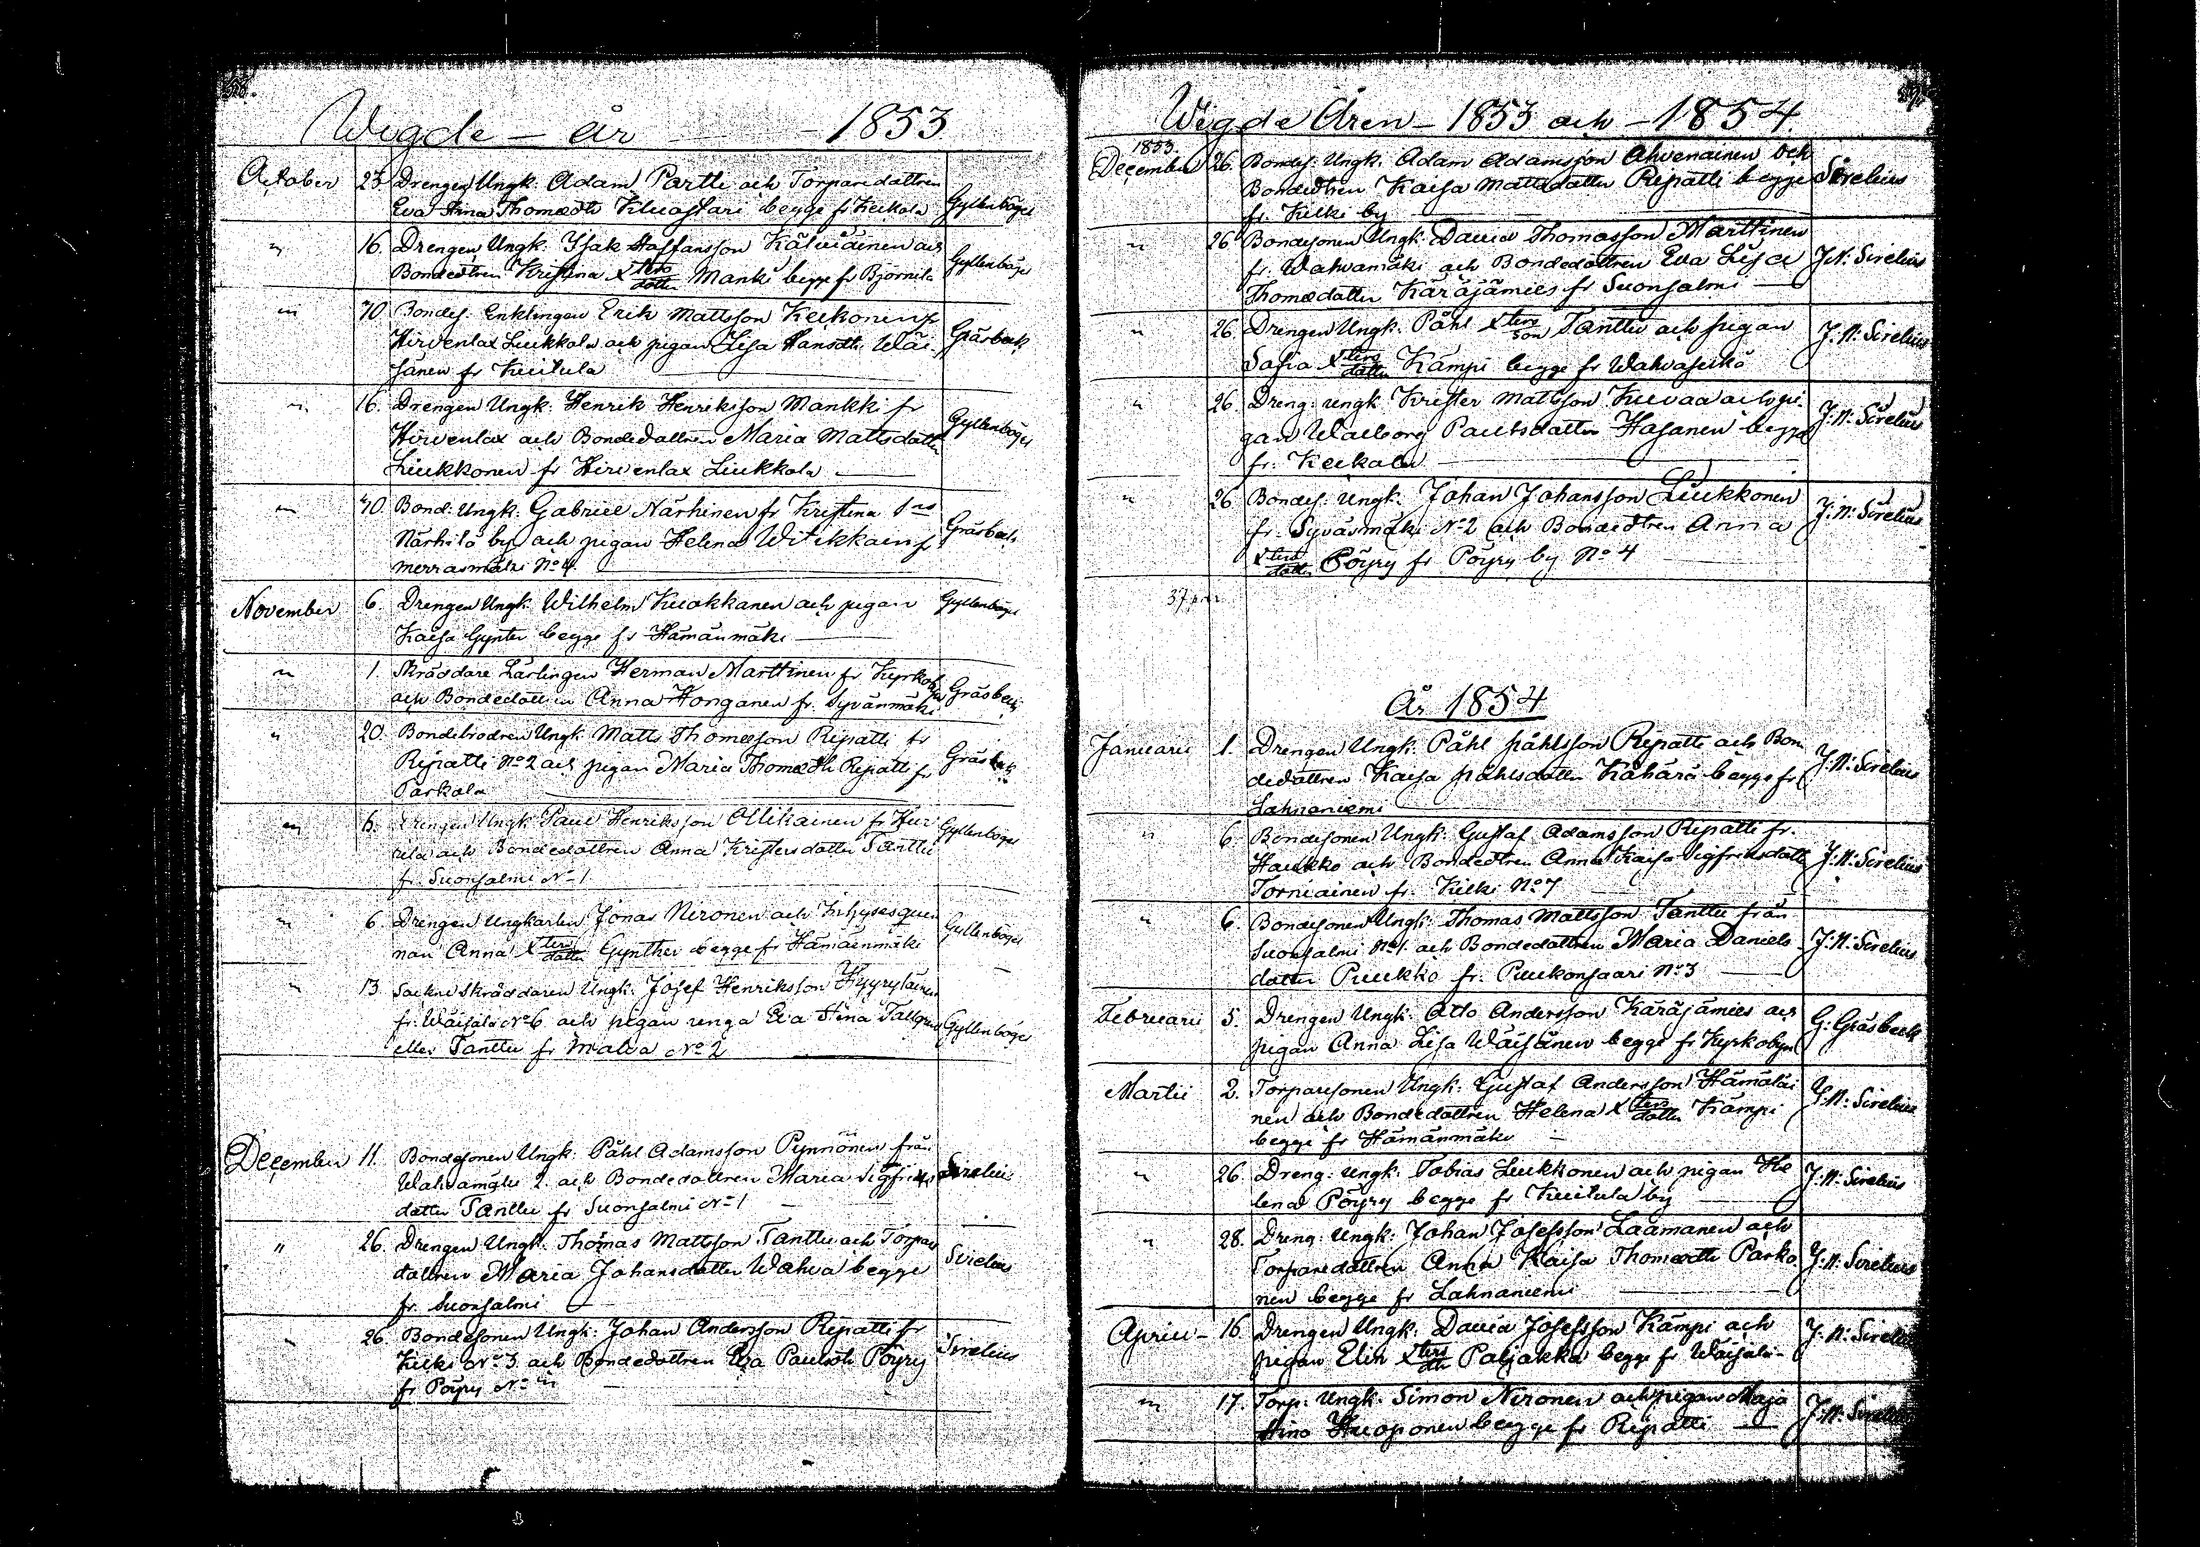 Wigde – år – 1853
October 23. Drengen Ungk: Adam Partti och Torparedottren Gyllenbögel
Eva Stina Thomædtr Kluastari begge fr Keikala
" 16. Drengen Ungk: Isak Staffansson Kälviäinen och Gyllenbögel
Bondedtren Kristina Xters dotter Manki begge fr Björnilä
" 30. Bondes. Enklingen Erik Mattsson Kekkonen fr Gråsbeck
Hirvenlax Liukkola och pigan Lisa Hansdtr Wäi-
sänen fr Kuitula
" 16. Drengen Ungk: Henrik Henriksson Mankki fr Gyllenbögel
Hirvenlax och Bondedottren Maria Mattsdotter
Liukkonen fr Hirvenlax Liukkola
" 30. Bond: Ungk: Gabriel Närhinen fr Kristina Gråsbeck
Närhilä by och pigan Helena Witikkain fr
Merrasmäki No 4.
November 6. Drengen Ungk. Wilhelm Kuokkanen och pigan Gyllenbögel
Kaisa Gynter begge fr Hämänmäki
" 1. Skräddare Lärlingen Herman Marttinen fr Kyrkoby Gråsbeck
och Bondedottren Anna Honganen fr. Syvänmäki
" 20. Bondebrodren Ungk. Matts Thomasson Ripatti fr Gråsbeck
Ripatti No 2 och pigan Maria Thomædtr Ripatti fr
Parkola
" 6. Drengen Ungk Paul Henriksson Ollikainen fr Gyllenbögel
och Bondedottren Anna Kristersdotter Tanttu
fr. Suonsalmi No 1
" 6. Drengen Ungkarlen Jonas Nironen och Inhysesqvin Gyllenbögel
nan Anna Xters dotter Gynther begge fr Hämäenmäki
" 13. Sockne Skräddaren Ungk: Josef Henriksson Hyyryläinen
fr. Wäisälä No 6. och pigan unga Eva Stina Tallgren Gyllenbögel
eller Tanttu fr Malva No 2
December 11. Bondesonen Ungk: Påhl Adamsson Pynnönen från
Wahvamäki 2. och Bondedottren Maria Sigfrids Sirelius
dotter Tanttu fr Suonsalmi No 1
" 26. Drengen Ungk: Thomas Mattsson Tanttu och Torpare
dottren Maria Johansdotter Wahva begge Sirelius
fr. Suonsalmi
" 26. Bondesonen Ungk: Johan Andersson Ripatti fr Sirelius
Kilki No 3 och Bondedottren Eva Paulsdtr Pöyry
fr Pöyry No
Wigde Åren – 1853 och – 1854.
1853.
December 26. Bondes. Ungk. Adam Adamsson Ahvenainen och Sirelius
Bondedtren Kaisa Mattsdotter Ripatti begge
fr. Kilki by
" 26. Bondesonen Ungk: David Thomasson Marttinen J:N: Sirelius
fr. Wahvamäki och Bondedottren Eva Lisa
Thomædotter Käräjämies fr Suonsalmi
" 26. Drengen Ungk. Påhl Xters son Tanttu och pigan J:N: Sirelius
Sofia Xters dotter Kämpi begge fr Wahvaselkä
" 26. Dreng: ungk Krister Mattsson Kuvaa och pi- J:N: Sirelius
gan Walborg Paulsdotter Hasanen begge
fr. Keikala
" 26. Bondes. Ungk. Johan Johansson Liukkonen J:N: Sirelius
fr. Syväsmäki No 2 och Bondedtren Anna
Xters dotter Pöyry fr Pöyry by No 4
37 par
År 1854
Januarii 1. Drengen Ungk. Påhl Påhlsson Ripatti och Bon J:N: Sirelius
dedottren Kaisa Påhlsdotter Kähärä begge fr
Lahnaniemi
" 6. Bondesonen Ungk: Gustaf Adamsson Ripatti fr. J:N: Sirelius
Haukko och Bondedtren Anna Kaisa Sigfridsdotter
Torniainen fr. Kilki No 7
" 6. Bondesonen Ungk: Thomas Mattsson Tanttu från J:N: Sirelius
Suonsalmi No 1. och Bondedottren Maria Daniels
dotter Puukko fr. Puukonsaari No 3
Februarii 5. Drengen Ungk. Otto Andersson Käräjämies och G: Gråsbeck
pigan Anna Lisa Wäisänen begge fr Kyrkobyn
Martii 2. Torparesonen Ungk: Gustaf Andersson Hämäläi J:N: Sirelius
nen och Bondedottren Helena Xters dotter Kämpi
begge fr Hämänmäki
" 26. Dreng: ungk. Tobias Liukkonen och pigan He J:N: Sirelius
lena Pöyry begge fr Kuitula by
" 28. Dreng: Ungk: Johan Josefsson Laamanen och
Torparedottren Anna Kaisa Thomædtr Parko J:N: Sirelius
nen begge fr Lahnaniemi
April 16. Drengen Ungk. David Josefsson Kämpi och J:N: Sirelius
pigan Elin Xters dtr Paljakka begge fr Wäisälä
" 17. Torp: Ungk. Simon Nironen och pigan Maja J:N: Sirelius
Stina Huoponen begge fr Ripatti